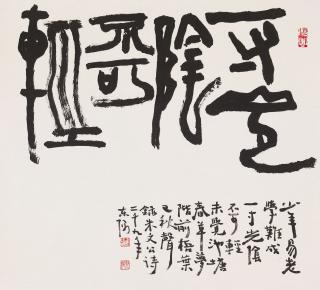 一寸光
陰
不可
輕
少年易老
學難成
一寸光陰
不可輕
未覺池塘
春草夢
階前梧葉
已秋聲
錄朱文公詩
二千九年